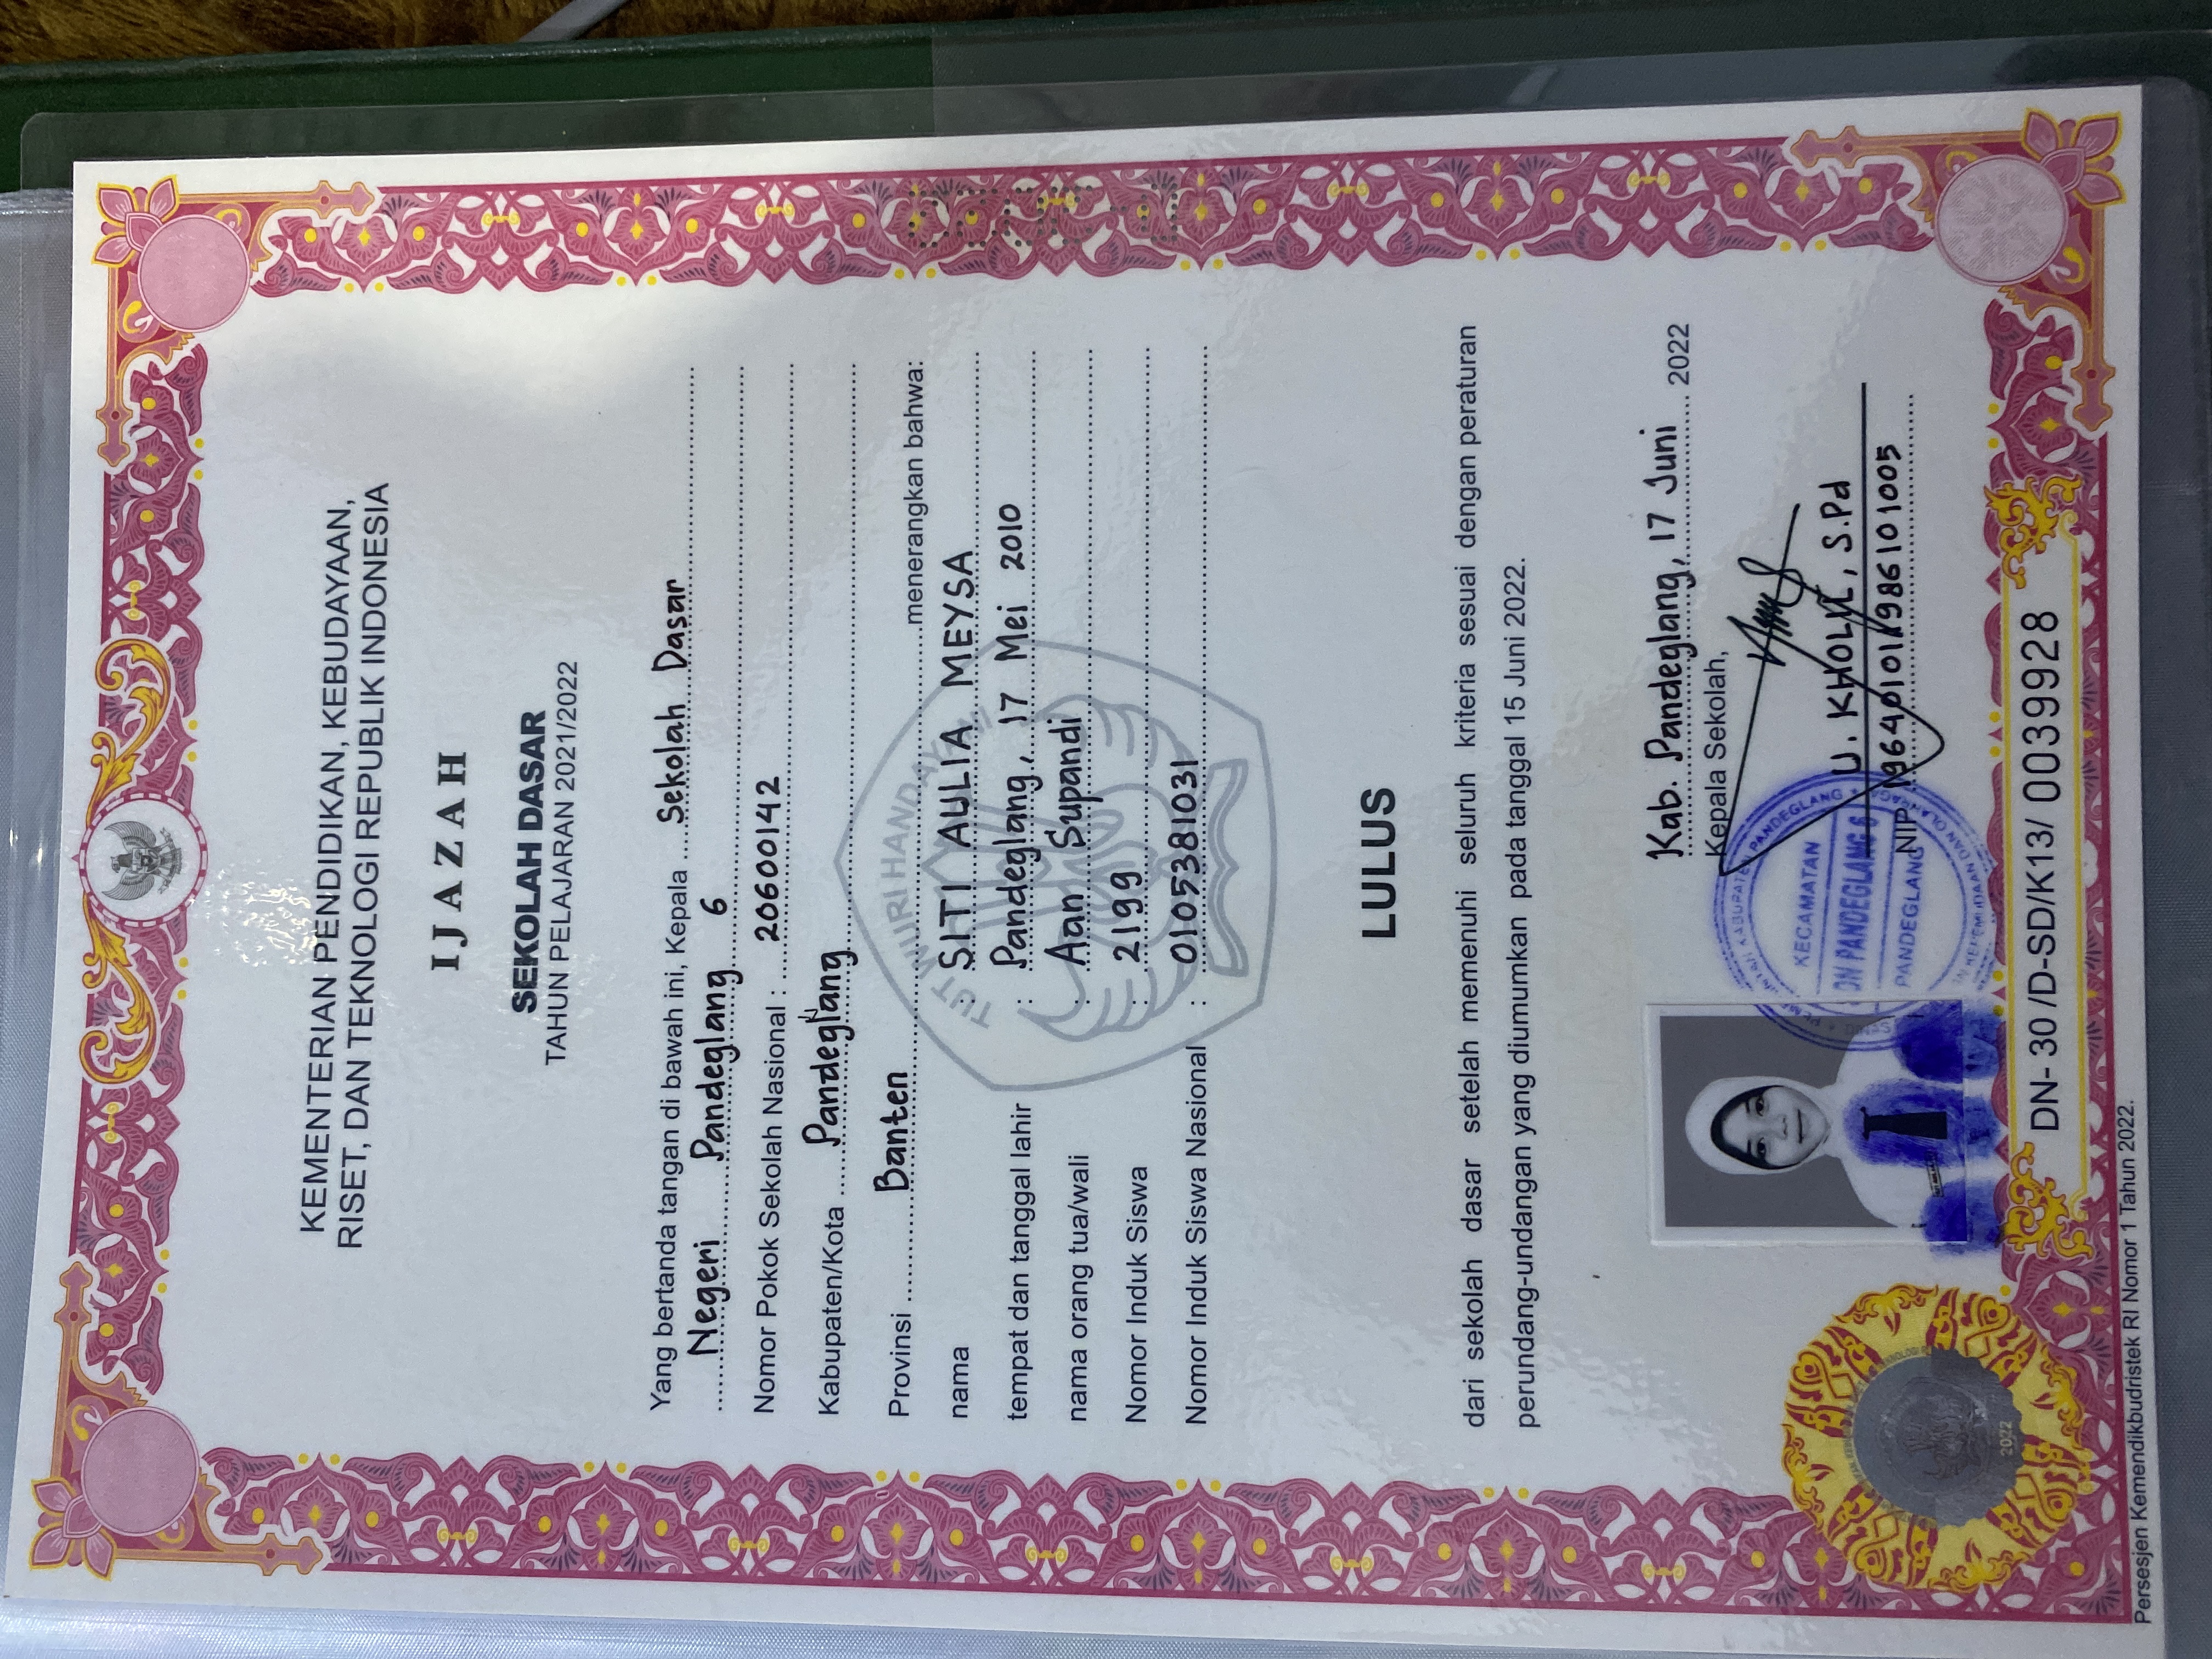 KEMENTERIAN PENDIDIKAN, KEBUDAYAAN,
RISET, DAN TEKNOLOGI REPUBLIK INDONESIA
IJAZAH
SEKOLAH DASAR
TAHUN PELAJARAN 2021/2022
Yang bertanda tangan di bawah ini, Kepala Sekolah Dasar
Negeri Pandeglang 6
Nomor Pokok Sekolah Nasional : 20600142
Kabupaten/Kota Pandeglang
Provinsi Banten menerangkan bahwa:
TUT WURI HANDAYANI
nama : SITI AULIA MEYSA
tempat dan tanggal lahir : Pandeglang, 17 Mei 2010
nama orang tua/wali : Aan Supandi
Nomor Induk Siswa : 2199
Nomor Induk Siswa Nasional : 0105381031
LULUS
dari sekolah dasar setelah memenuhi seluruh kriteria sesuai dengan peraturan
perundang-undangan yang diumumkan pada tanggal 15 Juni 2022.
Kab. Pandeglang, 17 Juni 2022
Kepala Sekolah,
KABUPATEN PANDEGLANG
KECAMATAN
PANDEGLANG 6
PANDEGLANG
KEPEMUDAAN DAN OLAHRAGA
U. KHOLIL, S.Pd
NIP. 196401011986101005
2022
DN- 30 /D-SD/K13/ 0039928
Persesjen Kemendikbudristek RI Nomor 1 Tahun 2022.